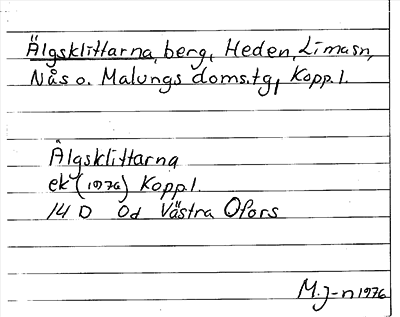 Älgsklittarna, berg, Heden, Lima sn,
Nås o. Malungs doms.tg, Kopp.l.
Älgsklittarna
ek (1976) Kopp.l.
14 D 0d Västra Ofors
M.J-n 1976